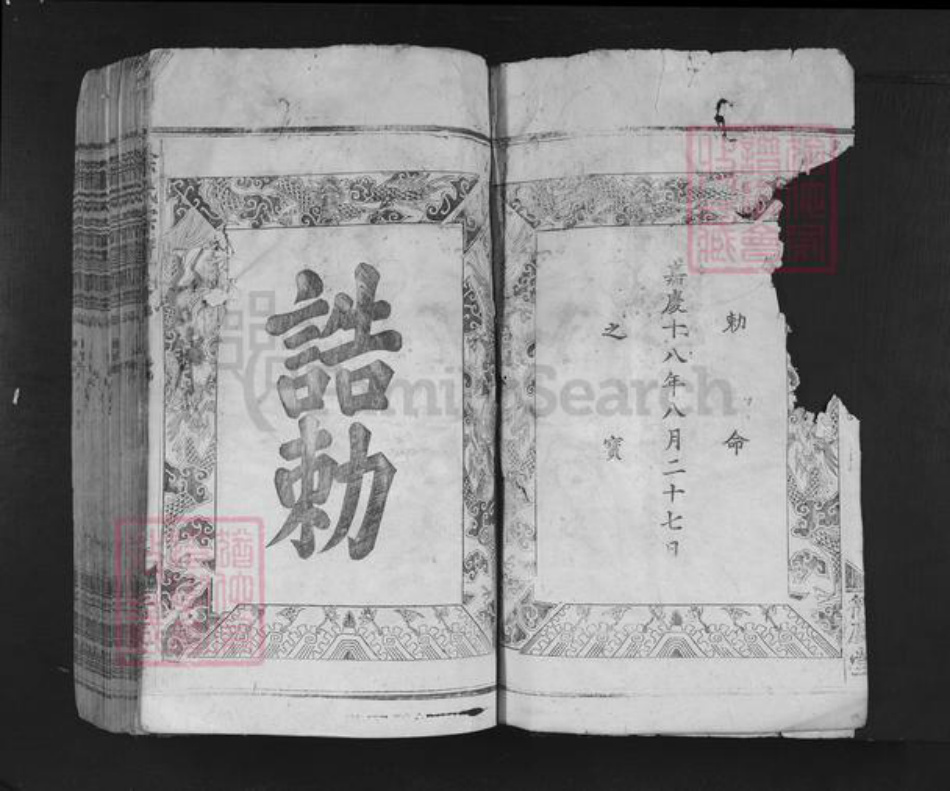 敕命
嘉慶十八年八月二十七日
之寶
誥勅
FamilySearch